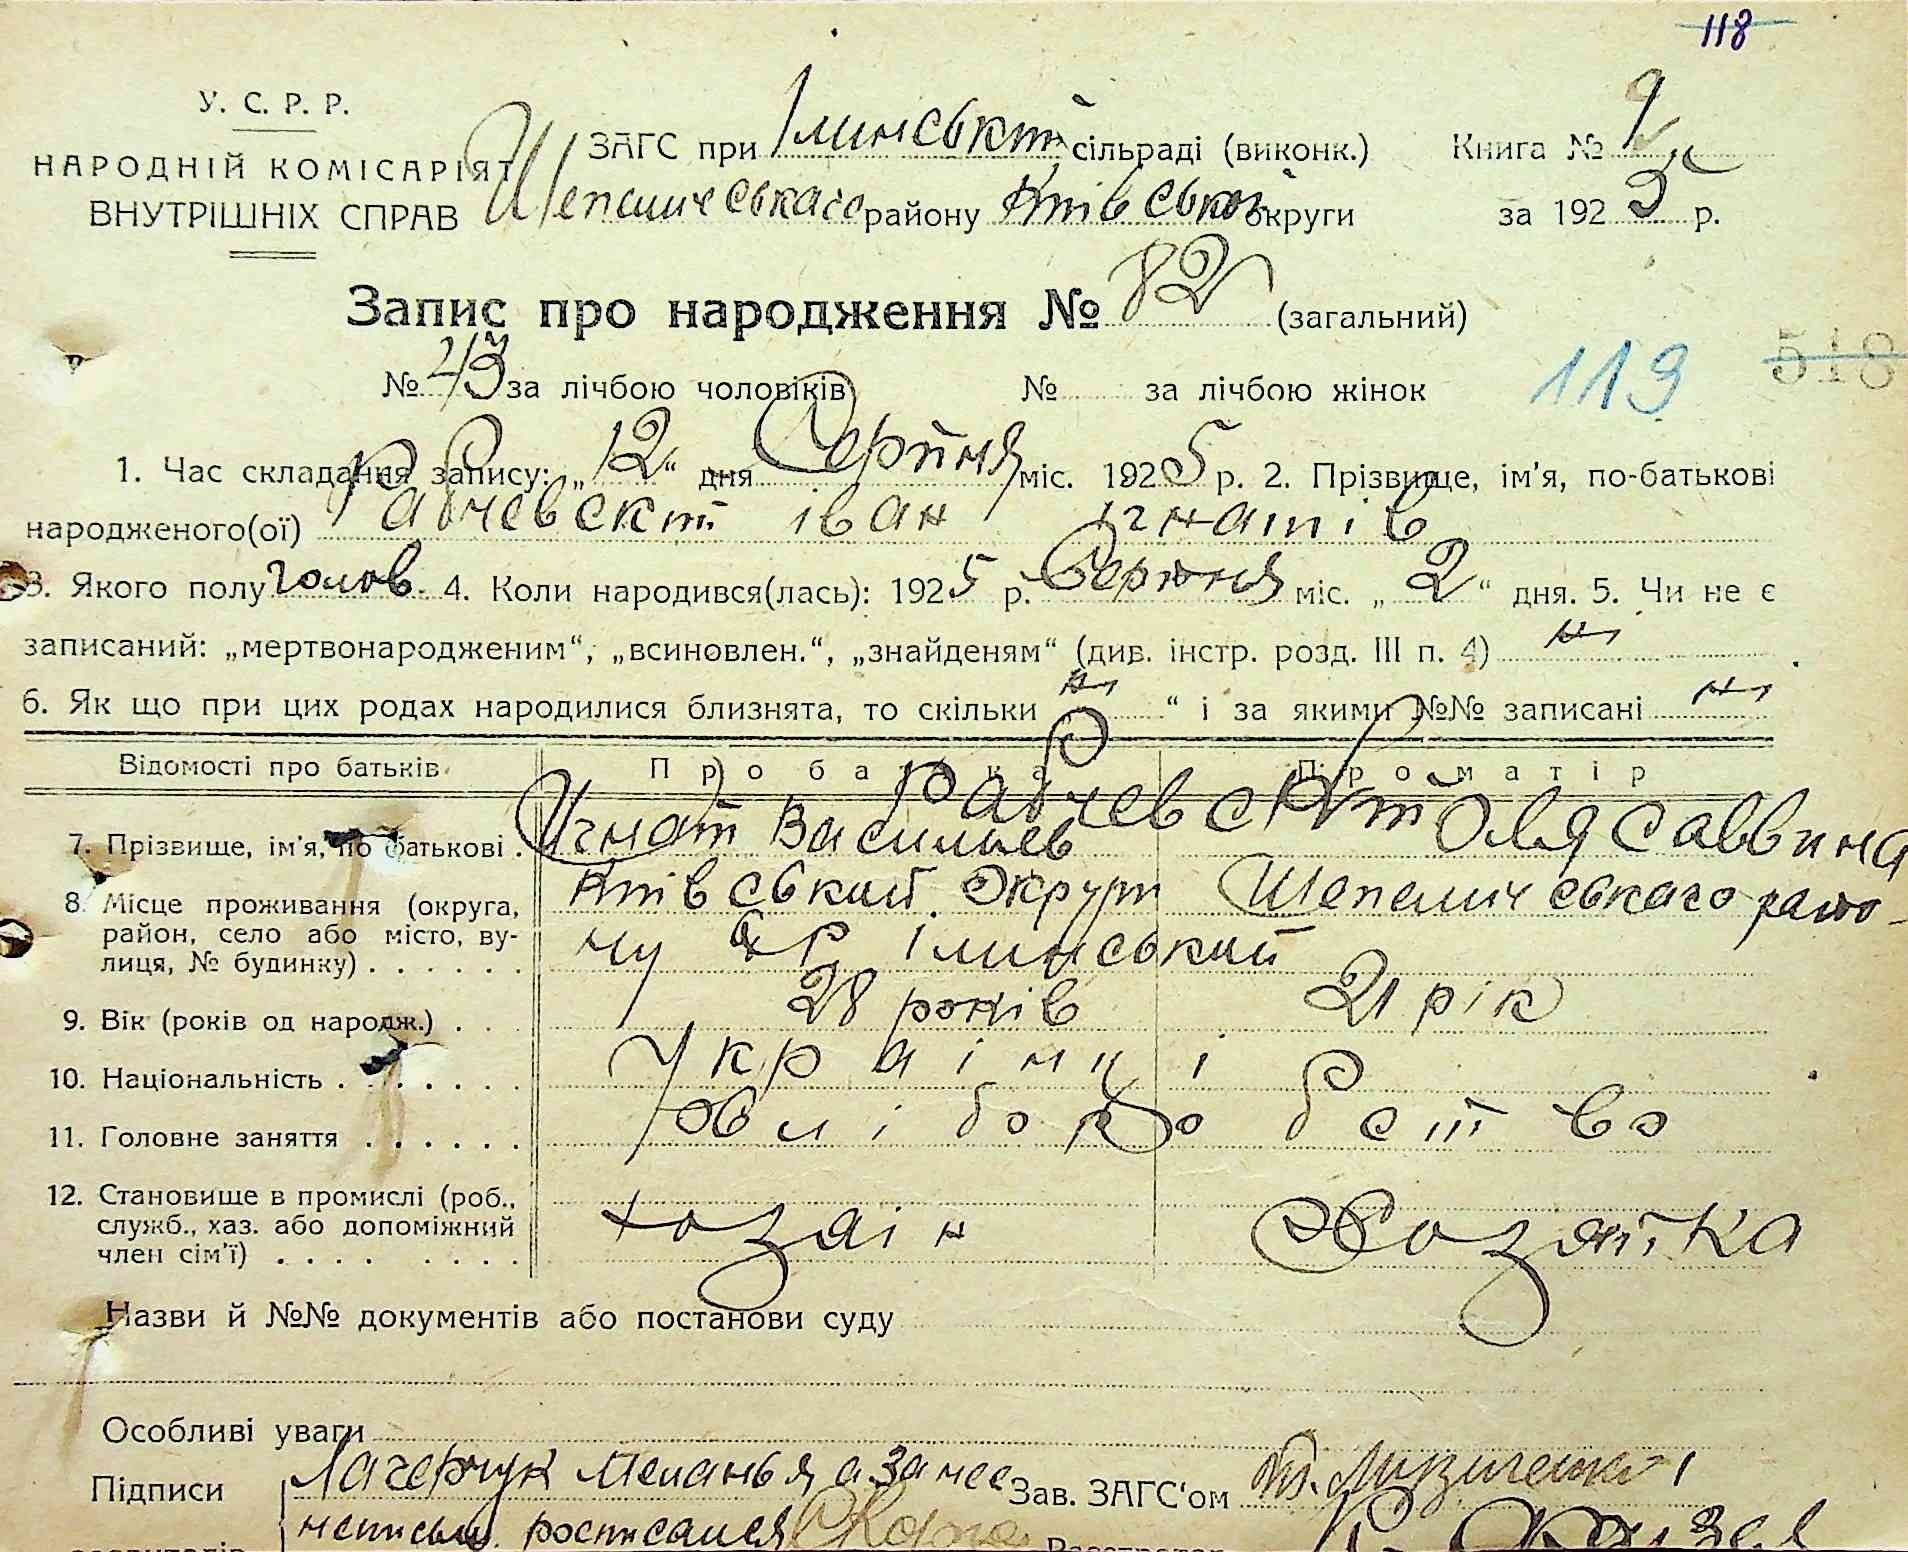 118
У. С. Р. Р.
НАРОДНІЙ КОМІСАРІЯТ
ВНУТРІШНІХ СПРАВ
ЗАГС при Ілинськй сільраді (виконк.) Книга №
Шепеличського району Київськой округи за 1925 р.
Запис про народження № 82 (загальний)
№ 43 за лічбою чоловіків № за лічбою жінок
119 518
1. Час складання запису: „12“ дня Серпня міс. 1925 р. 2. Прізвище, ім'я, по-батькові
народженого(ої) Рабчевскй іван ігнатів
3. Якого полу чолов. 4. Коли народився(лась): 1925 р. Серпня міс. „2“ дня. 5. Чи не є
записаний: „мертвонародженим“, „всиновлен.“, „знайденям“ (див. інстр. розд. III п. 4) ні
6. Як що при цих родах народилися близнята, то скільки „ні“ і за якими №№ записані ні
Відомості про батьків Про батька Про матір
Рабчевскй
7. Прізвище, ім'я, по батькові . Игнат Васильев Оля Саввина
8. Місце проживання (округа, Київський Округи Шепеличського райо-
район, село або місто, ву- ну с/р ілинський
лиця, № будинку) . . . . . .
9. Вік (років од народж.) . . . 28 років 21 рік
10. Національність . . . . . . . Українці
11. Головне заняття . . . . . . Хлібо робство
12. Становище в промислі (роб.,
служб., хаз. або допоміжний хозяін Хозяйка
член сім'ї) . . . . . . . .
Назви й №№ документів або постанови суду
Особливі уваги
Підписи Меланья а за нее Зав. ЗАГС'ом
неписьм. росписался